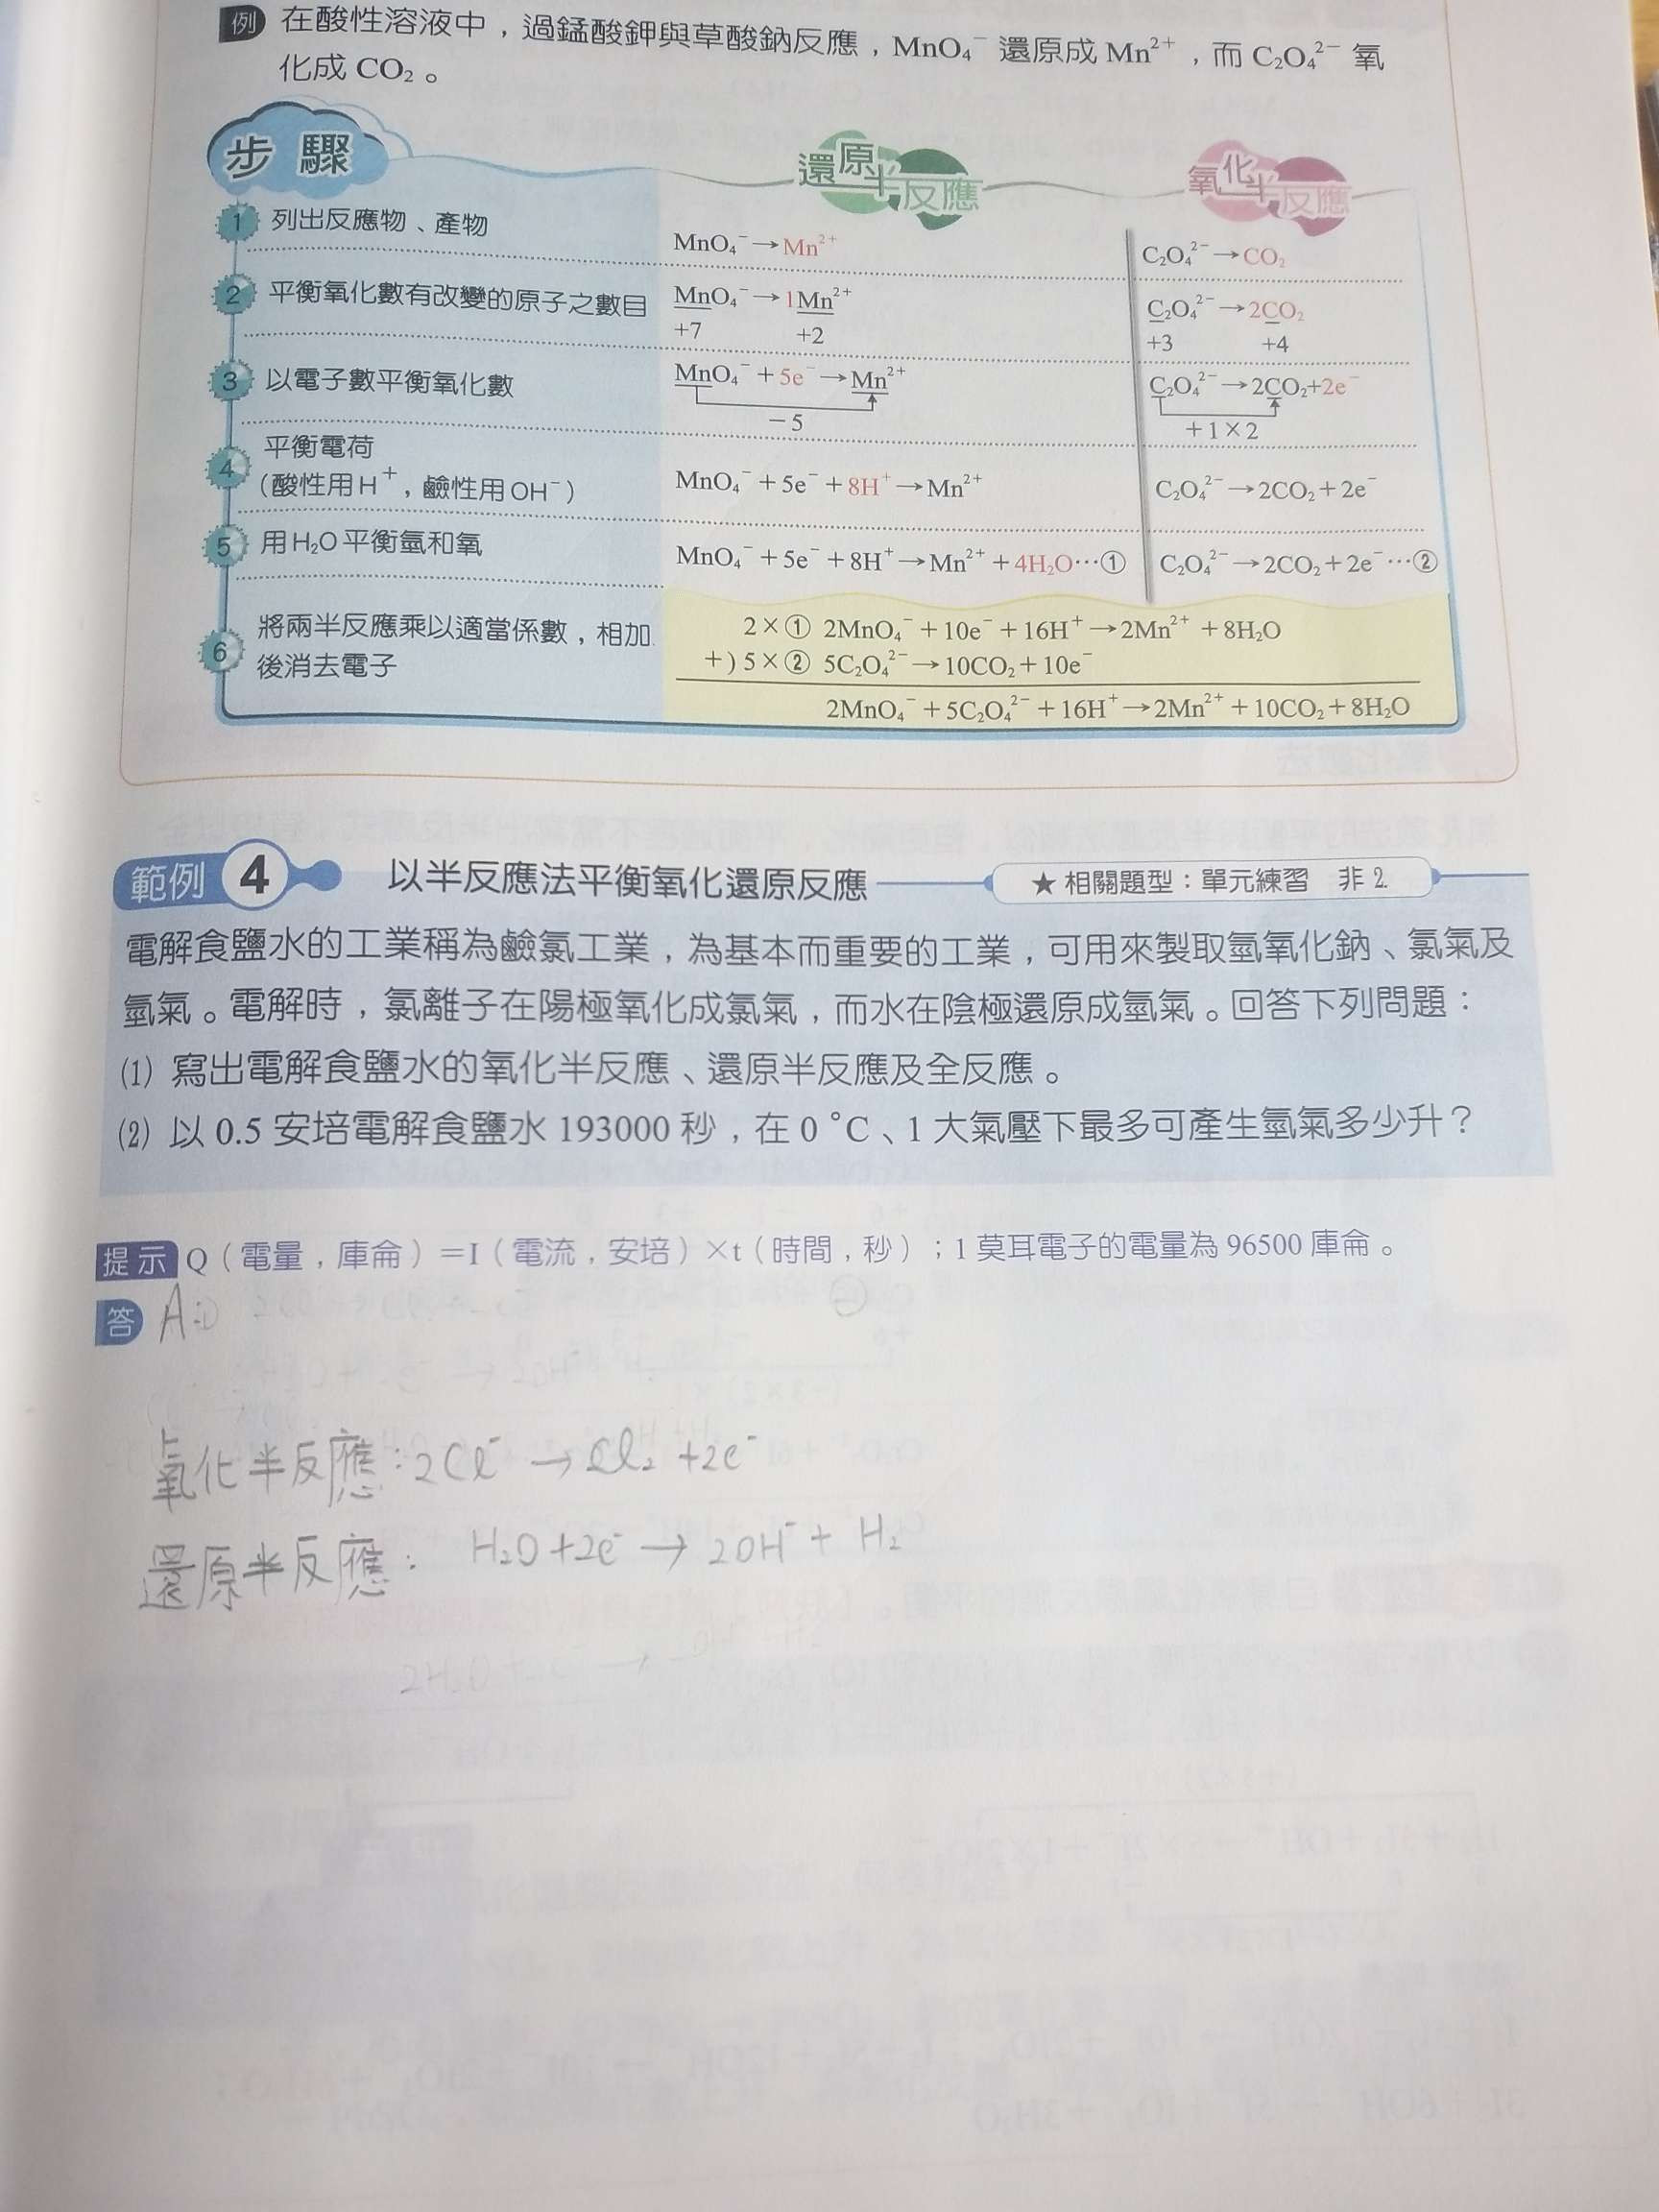 例 在酸性溶液中，過錳酸鉀與草酸鈉反應，MnO₄⁻ 還原成 Mn²⁺，而 C₂O₄²⁻ 氧
化成 CO₂。
步驟 還原半反應 氧化半反應
1 列出反應物、產物 MnO₄⁻→Mn²⁺ C₂O₄²⁻→CO₂
2 平衡氧化數有改變的原子之數目 MnO₄⁻→1Mn²⁺ C₂O₄²⁻→2CO₂
+7 +2 +3 +4
3 以電子數平衡氧化數 MnO₄⁻+5e⁻→Mn²⁺ C₂O₄²⁻→2CO₂+2e⁻
−5 +1×2
4 平衡電荷
(酸性用H⁺，鹼性用OH⁻) MnO₄⁻+5e⁻+8H⁺→Mn²⁺ C₂O₄²⁻→2CO₂+2e⁻
5 用H₂O平衡氫和氧 MnO₄⁻+5e⁻+8H⁺→Mn²⁺+4H₂O…① C₂O₄²⁻→2CO₂+2e⁻…②
6 將兩半反應乘以適當係數，相加 2×① 2MnO₄⁻+10e⁻+16H⁺→2Mn²⁺+8H₂O
後消去電子 +)5×② 5C₂O₄²⁻→10CO₂+10e⁻
2MnO₄⁻+5C₂O₄²⁻+16H⁺→2Mn²⁺+10CO₂+8H₂O
範例 4 以半反應法平衡氧化還原反應 ★相關題型：單元練習 非 2.
電解食鹽水的工業稱為鹼氯工業，為基本而重要的工業，可用來製取氫氧化鈉、氯氣及
氫氣。電解時，氯離子在陽極氧化成氯氣，而水在陰極還原成氫氣。回答下列問題：
(1) 寫出電解食鹽水的氧化半反應、還原半反應及全反應。
(2) 以 0.5 安培電解食鹽水 193000 秒，在 0 °C、1 大氣壓下最多可產生氫氣多少升？
提示 Q（電量，庫侖）＝I（電流，安培）×t（時間，秒）；1 莫耳電子的電量為 96500 庫侖。
答 A:
氧化半反應：2Cl⁻ → Cl₂ +2e⁻
還原半反應： H₂O+2e⁻ → 2OH⁻+ H₂